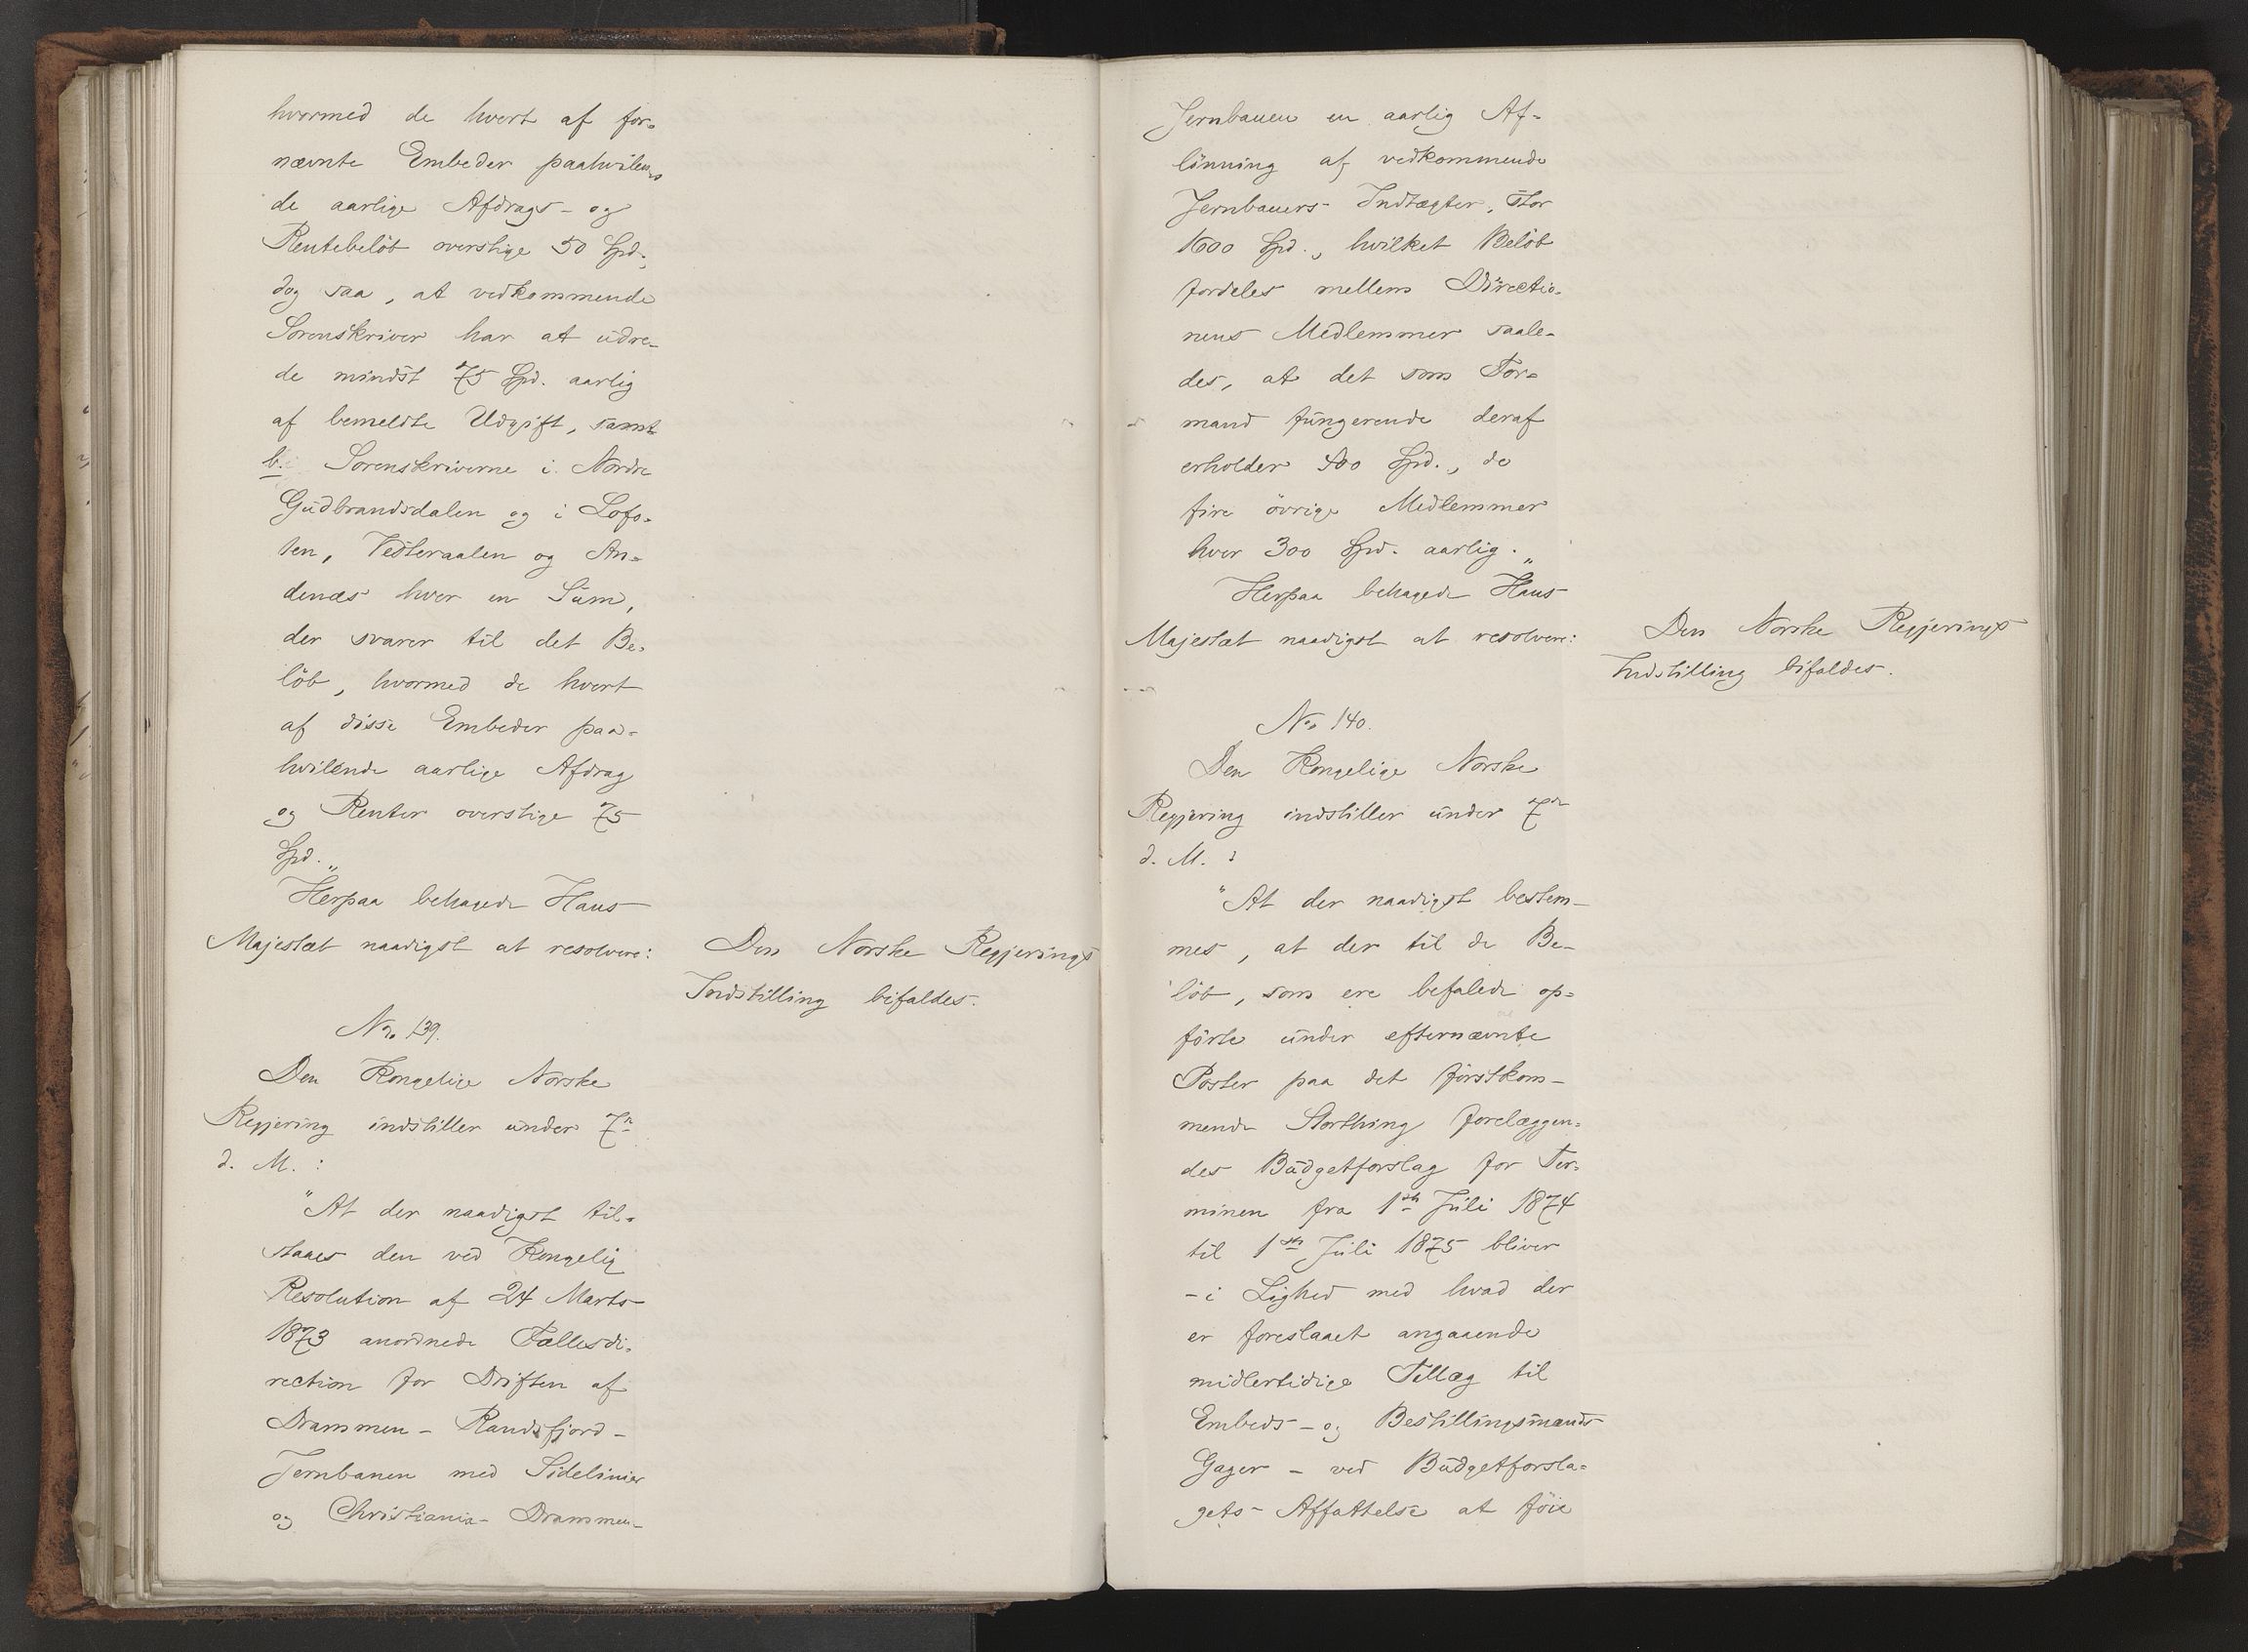 hvormed de hvert af for-
nævnte Embeder paahvilen-
de aarlige Afdrags- og
Rentebeløb overstige 50 Spd.,
dog saa, at vedkommende
Sorenskriver har at udre-
de mindst 75 Spd. aarlig
af bemeldte Udgift, samt
b. Sorenskriverne i Nordre
Gudbrandsdalen og i Lofo-
ten, Vesteraalen og An-
denæs hver en Sum,
der svarer til det Be-
løb, hvormed de hvert
af disse Embeder paa-
hvilende aarlige Afdrag
og Renter overstige 75
Spd."
Herpaa behagede Hans
Majestæt naadigst at resolvere:
Den Norske Regjerings
Indstilling bifaldes.
No. 139.
Den Kongelige Norske
Regjering indstiller under 7de
d. M.:
"At der naadigst til-
staaes den ved Kongelig
Resolution af 24 Marts
1873 anordnede Fællesdi-
rection for Driften af
Drammen-Randsfjord-
Jernbanen med Sidelinier
og Christiania-Drammen-
Jernbanen en aarlig Af-
lønning af vedkommende
Jernbaners Indtægter, stor
1600 Spd., hvilket Beløb
fordeles mellem Directio-
nens Medlemmer saale-
des, at det som For-
mand fungerende deraf
erholder 400 Spd., de
fire øvrige Medlemmer
hver 300 Spd. aarlig."
Herpaa behagede Hans
Majestæt naadigst at resolvere:
Den Norske Regjerings
Indstilling bifaldes.
No. 140.
Den Kongelige Norske
Regjering indstiller under 7de
d. M.:
"At der naadigst bestem-
mes, at der til de Be-
løb, som ere befalede op-
førte under efternævnte
Poster paa det førstkom-
mende Storthing forelæggen-
des Budgetforslag for Ter-
minen fra 1ste Juli 1874
til 1ste Juli 1875 bliver
- i Lighed med hvad der
er foreslaaet angaaende
midlertidige Tillæg til
Embeds- og Bestillingsmænds
Gager - ved Budgetforsla-
gets Affattelse at føie